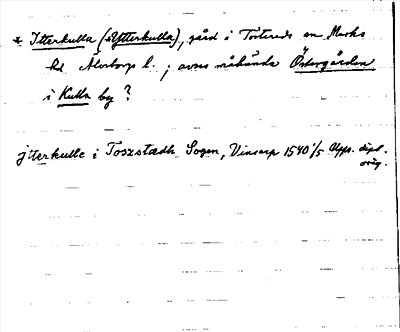 * Itterkulla (*Ytterkulla), gård i Torestads sn Marks
hd Älvsborgs l. ; avses måhända Östergården
i Kulla by ?
jtterkulle i Toszstædh Sogen, Vinsarp 1540 1/5 Upps. dipl.
orig.